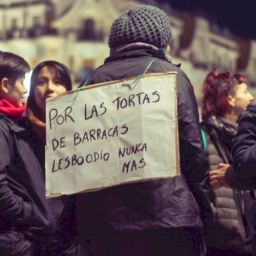 POR LAS TORTAS
DE BARRACAS
LESBOODIO NUNCA
MAS.